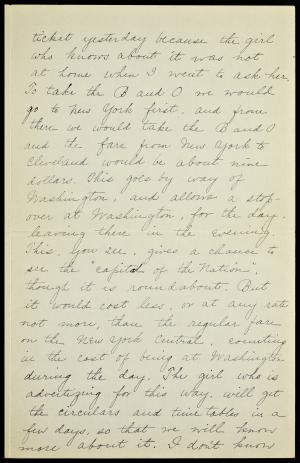 ticket yesterday because the girl
who knows about it was not
at home when I went to ask her.
To take the B and O we would
go to New York first, and from
there we would take the B and O
and the fare from New York to
Cleveland would be about nine
dollars. This goes by way of
Washington, and allows a stop-
over at Washington, for the day,
leaving there in the evening.
This, you see, gives a chance to
see the "capitol of the Nation",
though it is roundabout. But
it would cost less, or at any rate
not more, than the regular fare
on the New York Central, counting
in the cost of being at Washington
during the day. The girl who is
advertizing for this way, will get
the circulars and time tables in a
few days, so that we will know
more about it. I don't know